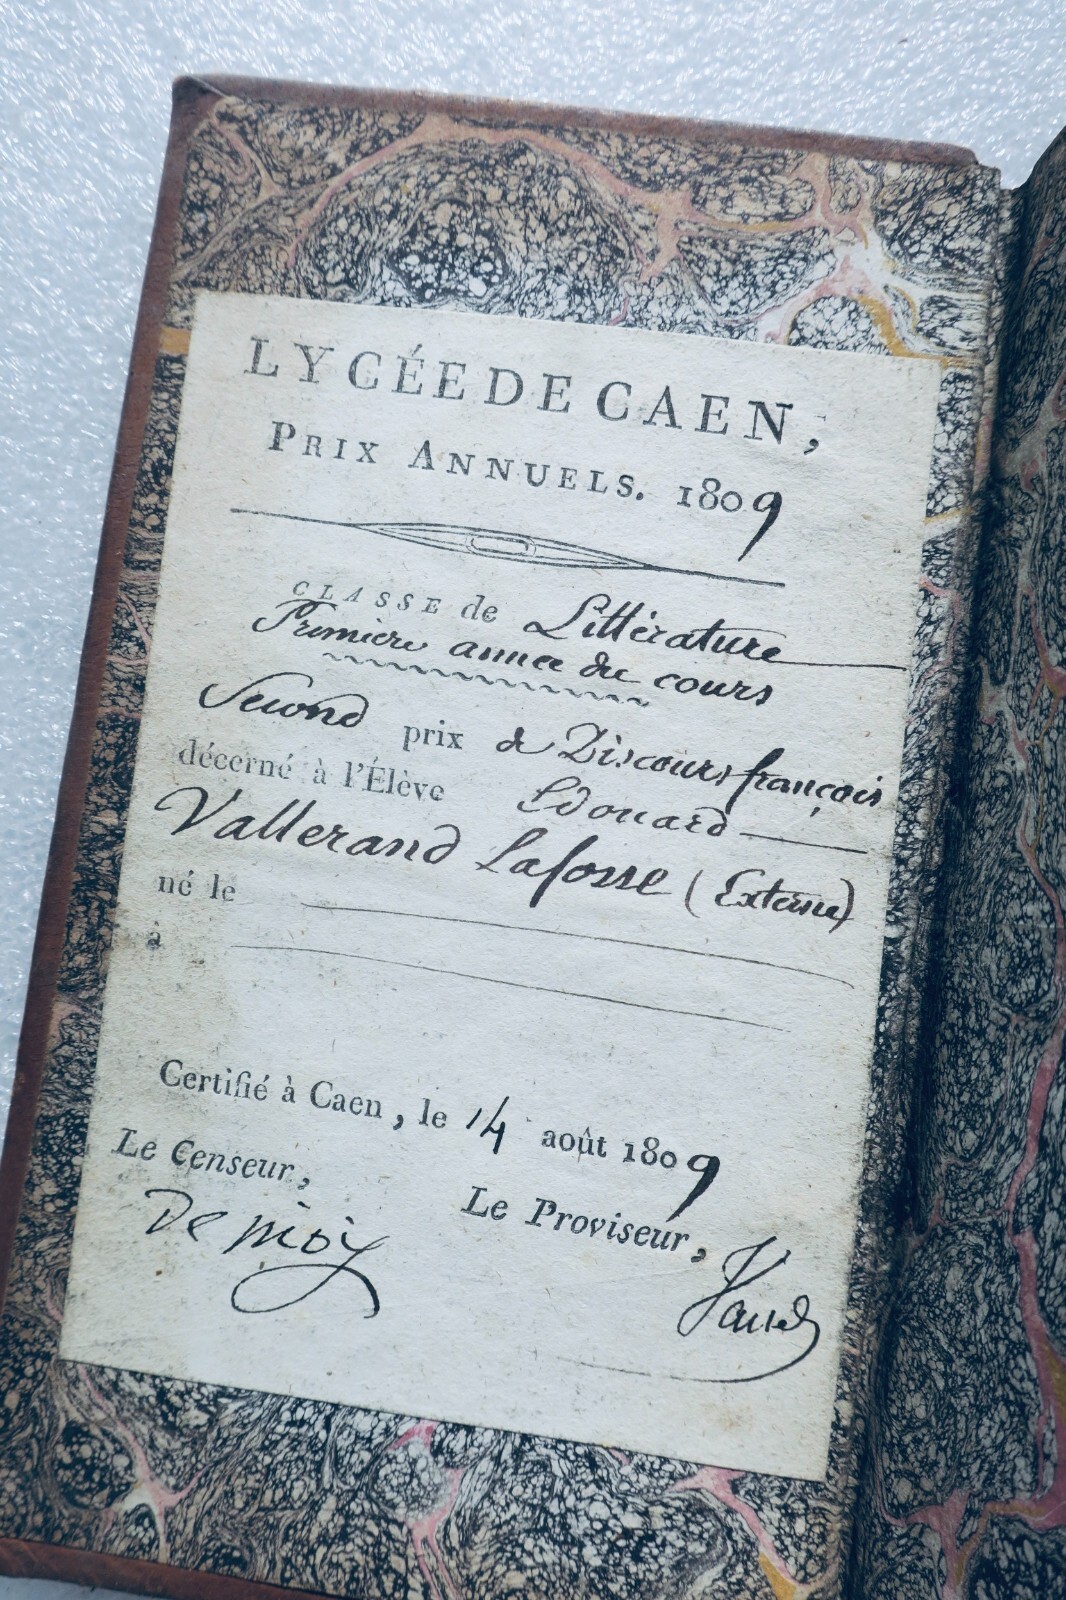 LYCÉE DE CAEN,
PRIX ANNUELS. 1809
CLASSE de Littérature
Première année du cours
Second prix de Discours françois
décerné à l'Élève Edouard
Vallerand Lafosse (Externe)
né le
à
Certifié à Caen, le 14 août 1809
Le Censeur,
Le Proviseur,